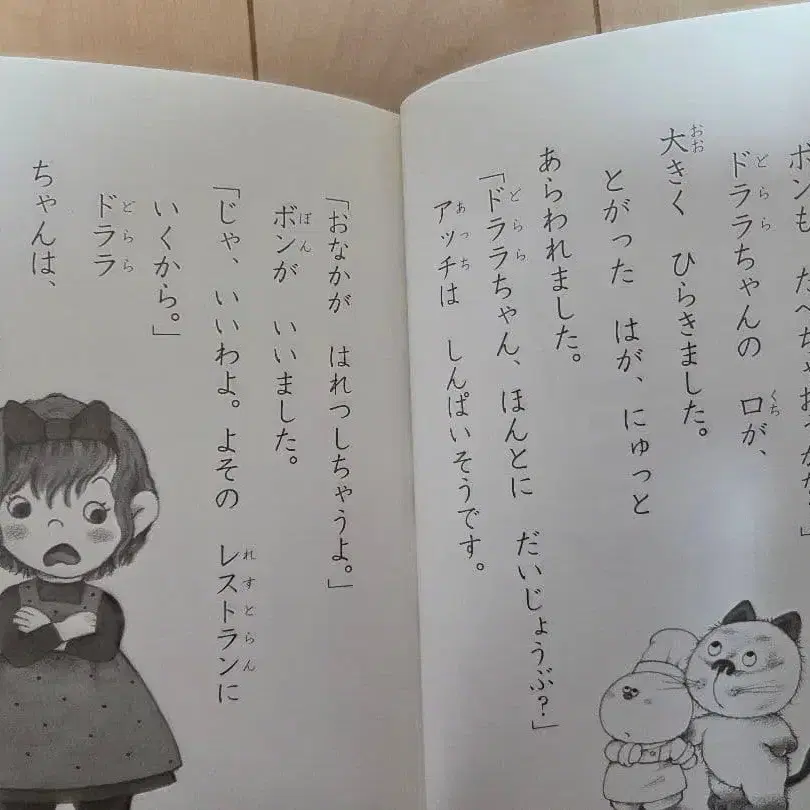 ボンも たべちゃおうかな」
ドララちゃんの 口が、
大きく ひらきました。
とがった はが、にゅっと
あらわれました。
「ドララちゃん、ほんとに だいじょうぶ？」
アッチは しんぱいそうです。
「おなかが はれつしちゃうよ。」
ボンが いいました。
「じゃ、いいわよ。よその レストランに
いくから。」
ドララ
ちゃんは、